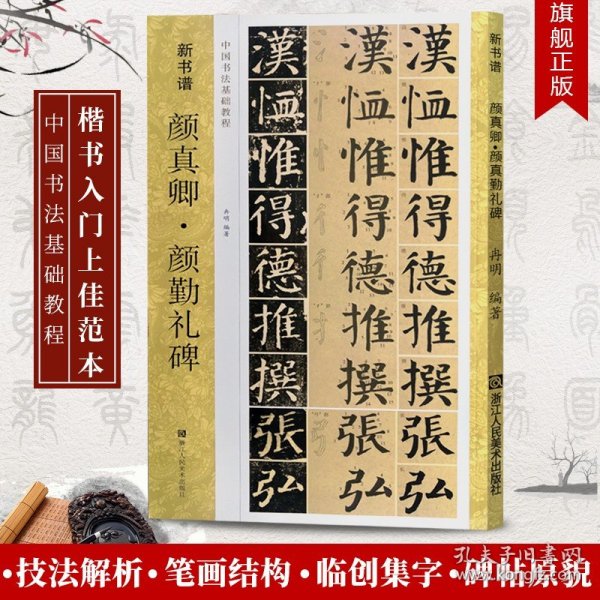 旗舰正版
楷书入门上佳范本
中国书法基础教程
新书谱
颜真卿·颜勤礼碑
中国书法基础教程
冉明 编著
浙江人民美术出版社
漢 漢 漢
恤 恤 恤
惟 惟 惟
得 得 得
德 德 德
推 推 推
撰 撰 撰
張 張 張
弘 弘 弘
新书谱
颜真卿·颜真勤礼碑
冉明 编著
浙江人民美术出版社
·技法解析·笔画结构·临创集字·碑帖原貌
孔夫子旧书网